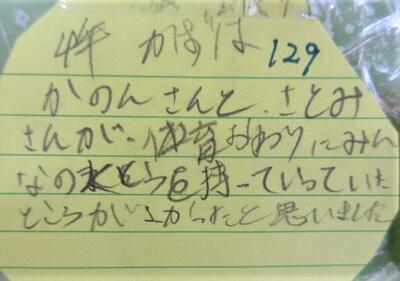 4年 かほりは 129
かのんさんと、さとみ
さんが、体育おわりにみん
なの水とうを持っていっていた
ところがよかったと思いました